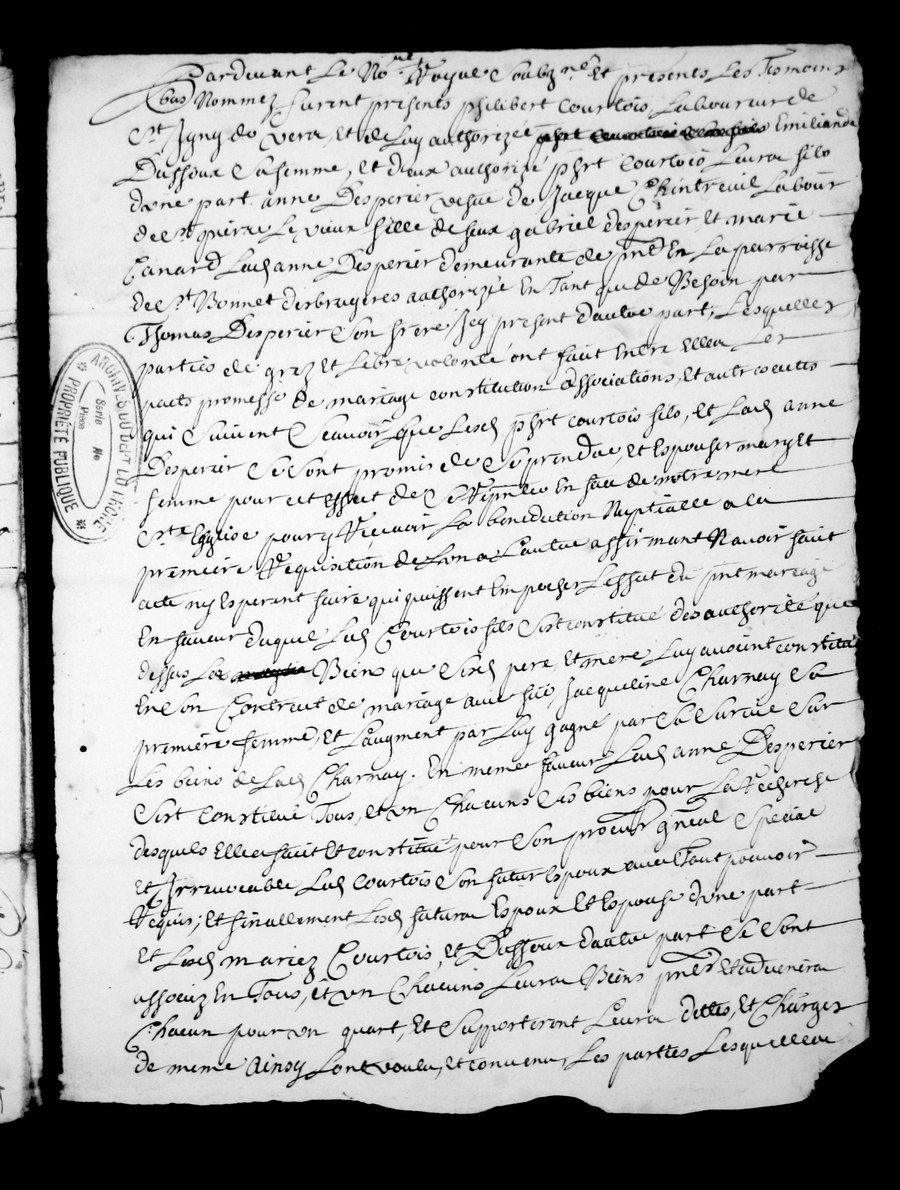 Pardevant Le No.re Royal Soubz.né Et presents, Les Tesmoins
bas Nommez furent presents philibert Courtois, Laboureur de
St Igny de vers, et de Luy authorizée Emiliande
Dussoux Sa femme, et d'eux authorizé phrt Courtois Leurs filz
d'une part. anne Desperier vefue de Jacque Chintreuil Labour
de St pierre Le vieux fille de feux gabriel desperier, et marie
Canard Lad anne Desperier demeurante de pnt En La parroisse
de St Bonnet des bruyeres authorizée En Tant que de Besoin par
Thomas Desperier Son frere Icy present d'autre part, Lesquelles
parties de grez Et Libre volonté ont fait Entre Elles Les
pacts promesse de mariage constitution associations, Et autres
qui Suivent Scavoir que Lesd phrt courtois filz, et Lad anne
Desperier Se Sont promis de Se prendre, et Espouser mary et
femme pour cet effect de Se En face de notre mere
Ste Eglise pour y Recevoir La benediction Nuptialle a la
premiere Requisition de L'un a L'autre affirmant N'avoir fait
acte ny Esperent faire qui puissent Empecher L'effait du pnt mariage
En faveur duquel Led Courtois fils S'est constitué des authorité que
dessus Les Biens que Sesd pere, et mere Luy avoient constitué
En Son Contract de mariage avec feüe Jacqueline Charnay Sa
premiere femme, et L'augment par Luy gagné par Sa Survie Sur
Les biens de Lad Charnay. En meme faveur Lad anne Desperier
S'est constitué Tous, et un Chacuns Ses biens pour La Recherche
desquels Elle a fait Et constitué pour Son procur gneral Special
Et Irrevocable Led Courtois Son futur Espoux avec Tout pouvoir
Requis; Et finallement Lesd futurs Espoux Et Espouse d'une part
Et Lesd mariez Courtois, et Dussoux d'autre part Se Sont
associez En Tous, et un Chacuns Leurs Biens pnts Et advenirs
Chacun pour un quart, et Supporteront Leurs dettes, et Charges
de meme Ainsy L'ont voulu, et convenu, Les parties Lesquelles
ARCHIVES DU DEPT DU RHÔNE
PROPRIÉTÉ PUBLIQUE
Série No
Pièce